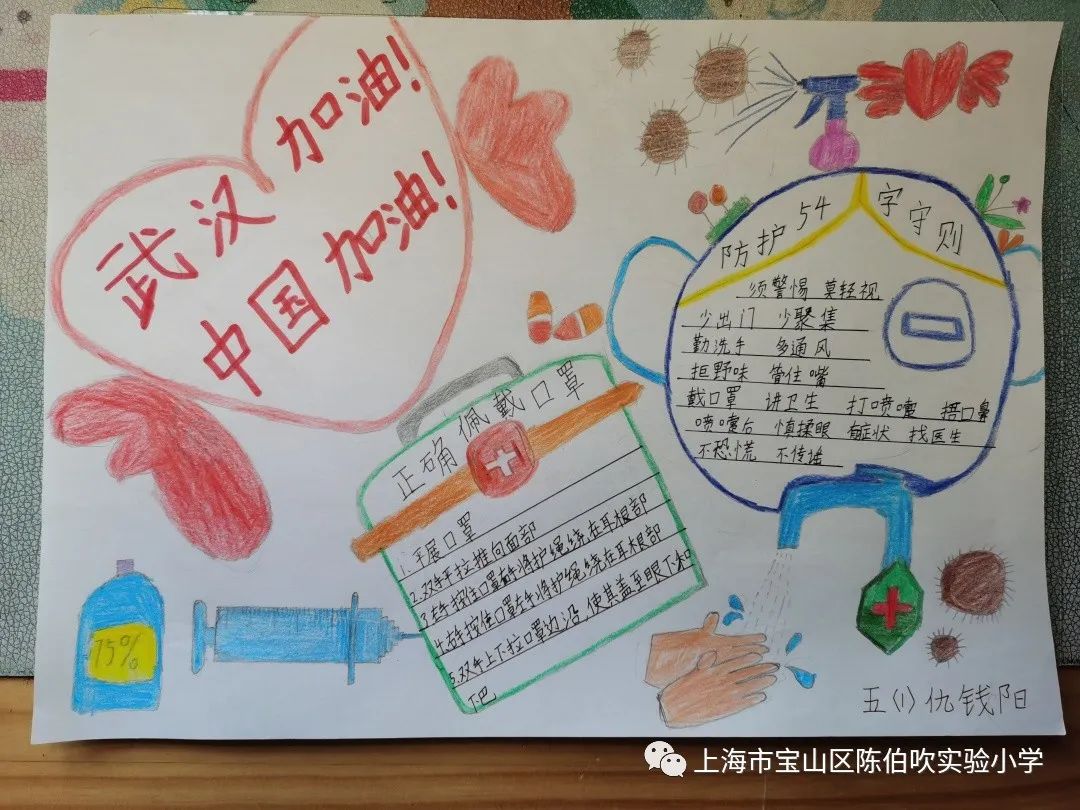 武汉加油！
中国加油！
防护54字守则
须警惕 莫轻视
少出门 少聚集
勤洗手 多通风
拒野味 管住嘴
戴口罩 讲卫生 打喷嚏 捂口鼻
喷嚏后 慎揉眼 有症状 找医生
不恐慌 不传谣
正确佩戴口罩
1.平展口罩
2.双手平拉推向面部
3.左手按住口罩右手将护绳绕在耳根部
4.右手按住口罩左手将护绳绕在耳根部
5.双手上下拉口罩边沿,使其盖至眼下和
下巴
75%
五(1)仇钱阳
上海市宝山区陈伯吹实验小学